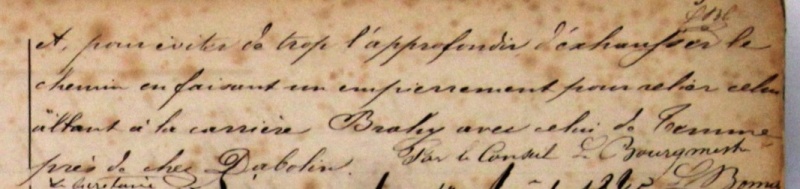 et, pour éviter de trop l'approfondir d'exhausser le
chemin en faisant un empierrement pour relier celui
allant à la carrière Brahy avec celui de Temme
près de chez Dabolin. Par le Conseil Le Bourgmestre
Le Secrétaire